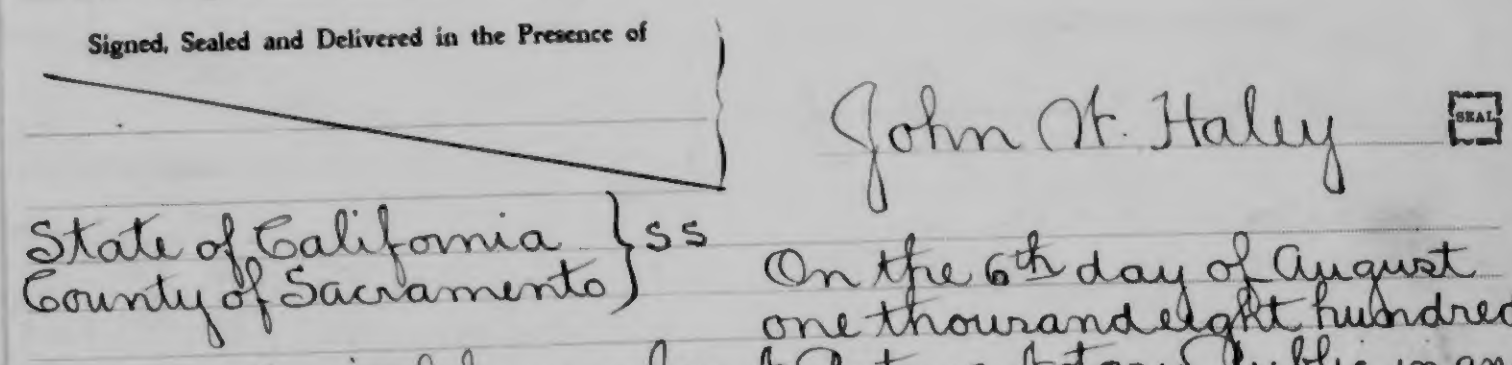 Signed, Sealed and Delivered in the Presence of
John H. Haley SEAL
State of California } ss
County of Sacramento
On the 6th day of August
one thousand eight hundred
Public in an